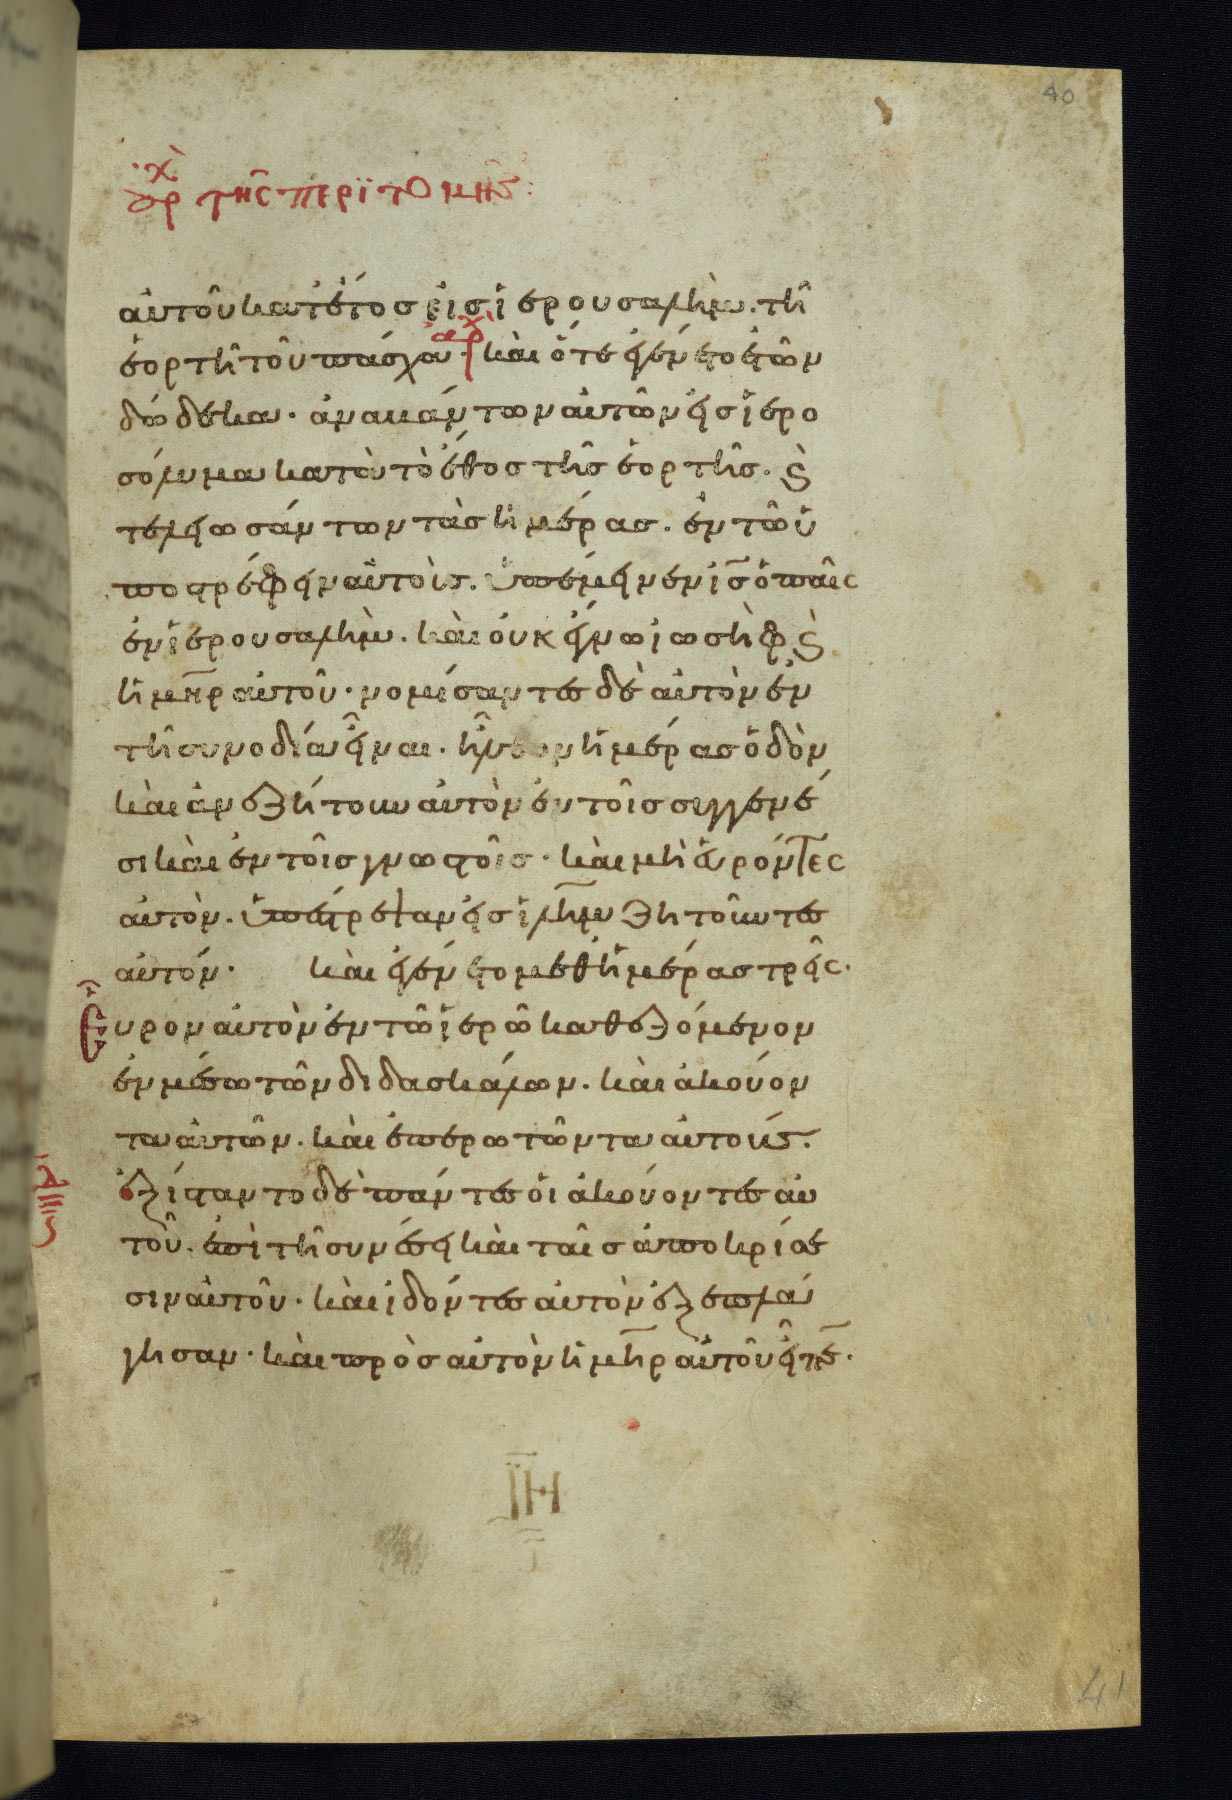 40
ἀρχ τῆς περϊτομῆς:
αὐτοῦ κατέτος εἰς ἱερουσαλὴμ. τῆ
ἑορτῆ τοῦ πάσχα· ἀρχ καὶ ὅτε ἐγένετο ἐτῶν
δώδεκα· ἀναβάντων αὐτῶν εἰς ἱερο
σόλυμα κατὰ τὸ ἔθος τῆς ἑορτῆς. ϛ
τελειωσάντων τὰς ἡμέρας. ἐν τῶ ὑ
ποστρέφειν αὐτοὺς. ὑπέμεινεν ις ὁ παῖς
ἐν ἱερουσαλὴμ. καὶ οὐκ ἔγνω ἰωσὴφ ϛ
ἡ μηρ αὐτοῦ· νομίσαντες δὲ αὐτὸν ἐν
τῆ συνοδία εἶναι. ἦλθον ἡμέρας ὁδὸν
καὶ ἀνεζήτουν αὐτὸν ἐν τοῖς συγγενέ
σι καὶ ἐν τοῖς γνωστοῖς· καὶ μὴ εὑρόντες
αὐτὸν. ὑπέστρεψαν εἰς ἱλημ ζητοῦντες
αὐτόν· καὶ ἐγένετο μεθ ἡμέρας τρεῖς.
Εὗρον αὐτὸν ἐν τῶ ἱερῶ καθεζόμενον
ἐν μέσω τῶν διδασκάλων. καὶ ἀκούον
τα αὐτῶν. καὶ ἐπερωτῶντα αὐτούς.
ἐξίσταντο δὲ πάντες οἱ ἀκούοντες αὐ
τοῦ. ἐπὶ τῆ συνέσει καὶ ταῖς ἀποκρίσε
σιν αὐτοῦ· καὶ ἰδόντες αὐτὸν ἐξεπλά
γησαν· καὶ πρὸς αὐτὸν ἡ μηρ αὐτοῦ εἶπε·
ΙΗ
41